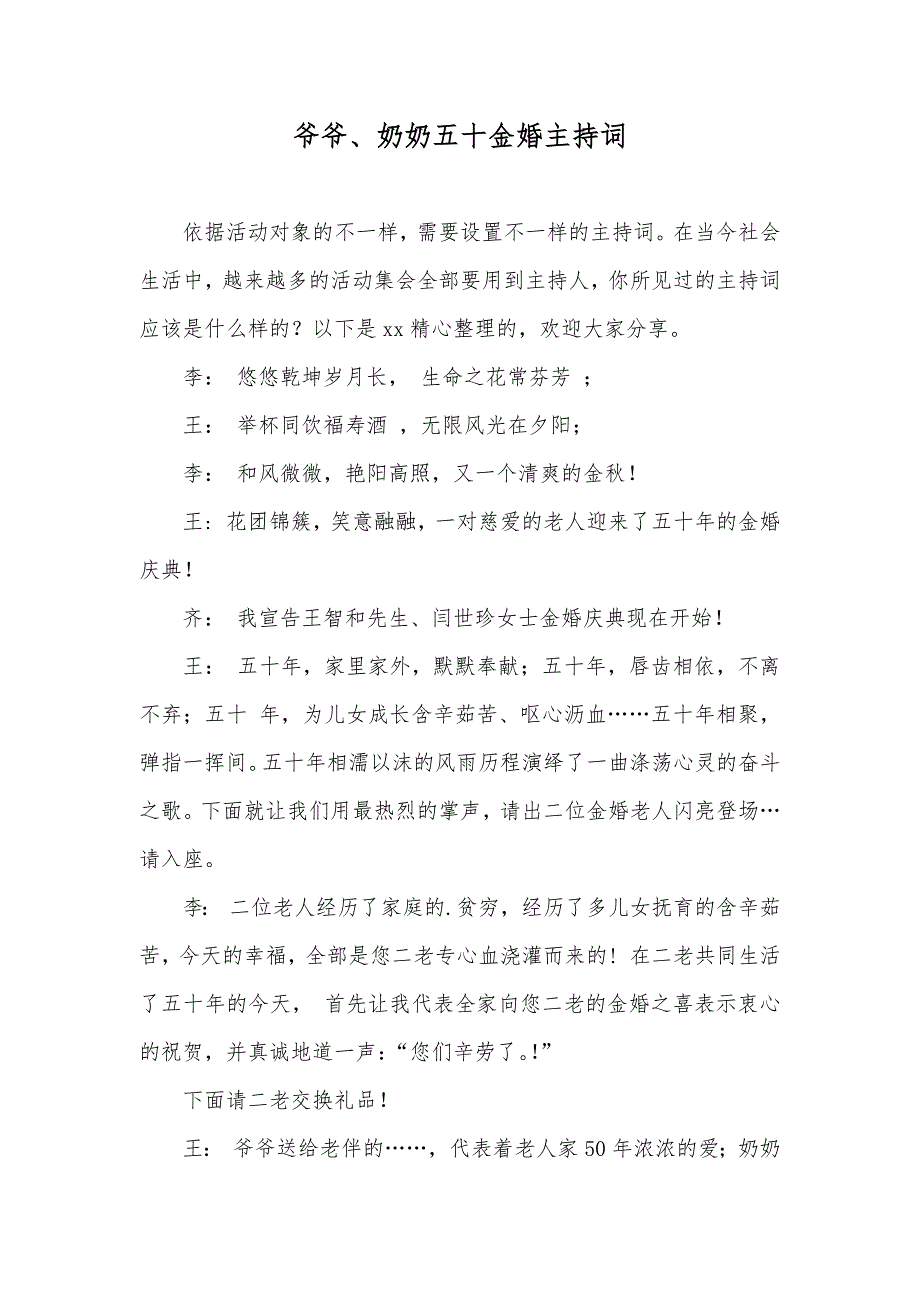 爷爷、奶奶五十金婚主持词
依据活动对象的不一样，需要设置不一样的主持词。在当今社会
生活中，越来越多的活动集会全部要用到主持人，你所见过的主持词
应该是什么样的？以下是 xx 精心整理的，欢迎大家分享。
李： 悠悠乾坤岁月长， 生命之花常芬芳 ；
王： 举杯同饮福寿酒 ，无限风光在夕阳；
李： 和风微微，艳阳高照，又一个清爽的金秋！
王：花团锦簇，笑意融融，一对慈爱的老人迎来了五十年的金婚
庆典！
齐： 我宣告王智和先生、闫世珍女士金婚庆典现在开始！
王： 五十年，家里家外，默默奉献；五十年，唇齿相依，不离
不弃；五十 年，为儿女成长含辛茹苦、呕心沥血……五十年相聚，
弹指一挥间。五十年相濡以沫的风雨历程演绎了一曲涤荡心灵的奋斗
之歌。下面就让我们用最热烈的掌声，请出二位金婚老人闪亮登场…
请入座。
李： 二位老人经历了家庭的.贫穷，经历了多儿女抚育的含辛茹
苦，今天的幸福，全部是您二老专心血浇灌而来的! 在二老共同生活
了五十年的今天， 首先让我代表全家向您二老的金婚之喜表示衷心
的祝贺，并真诚地道一声：“您们辛劳了。！”
下面请二老交换礼品！
王： 爷爷送给老伴的……，代表着老人家 50 年浓浓的爱；奶奶